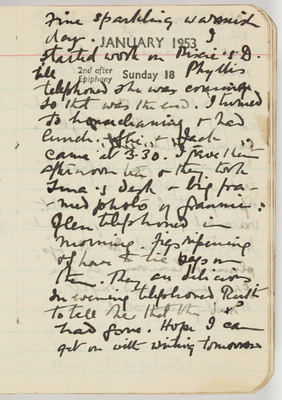 Fine sparkling warmish
day. I
JANUARY 1953
started work on Dixie's D.
2nd after Epiphany Sunday 18
till Phyllis
telephoned she was coming
so that was the end. I turned
to housecleaning & had
lunch. She & Jack
came at 3.30. I gave them
afternoon tea & they took
desk & big fra-
-med photo of Grannie.
Glen telephoned in
morning. Figs ripening
& have to tie bags on
them. They are delicious
In evening telephoned Ruth
to tell her that the
had gone. Hope I can
get on with writing tomorrow